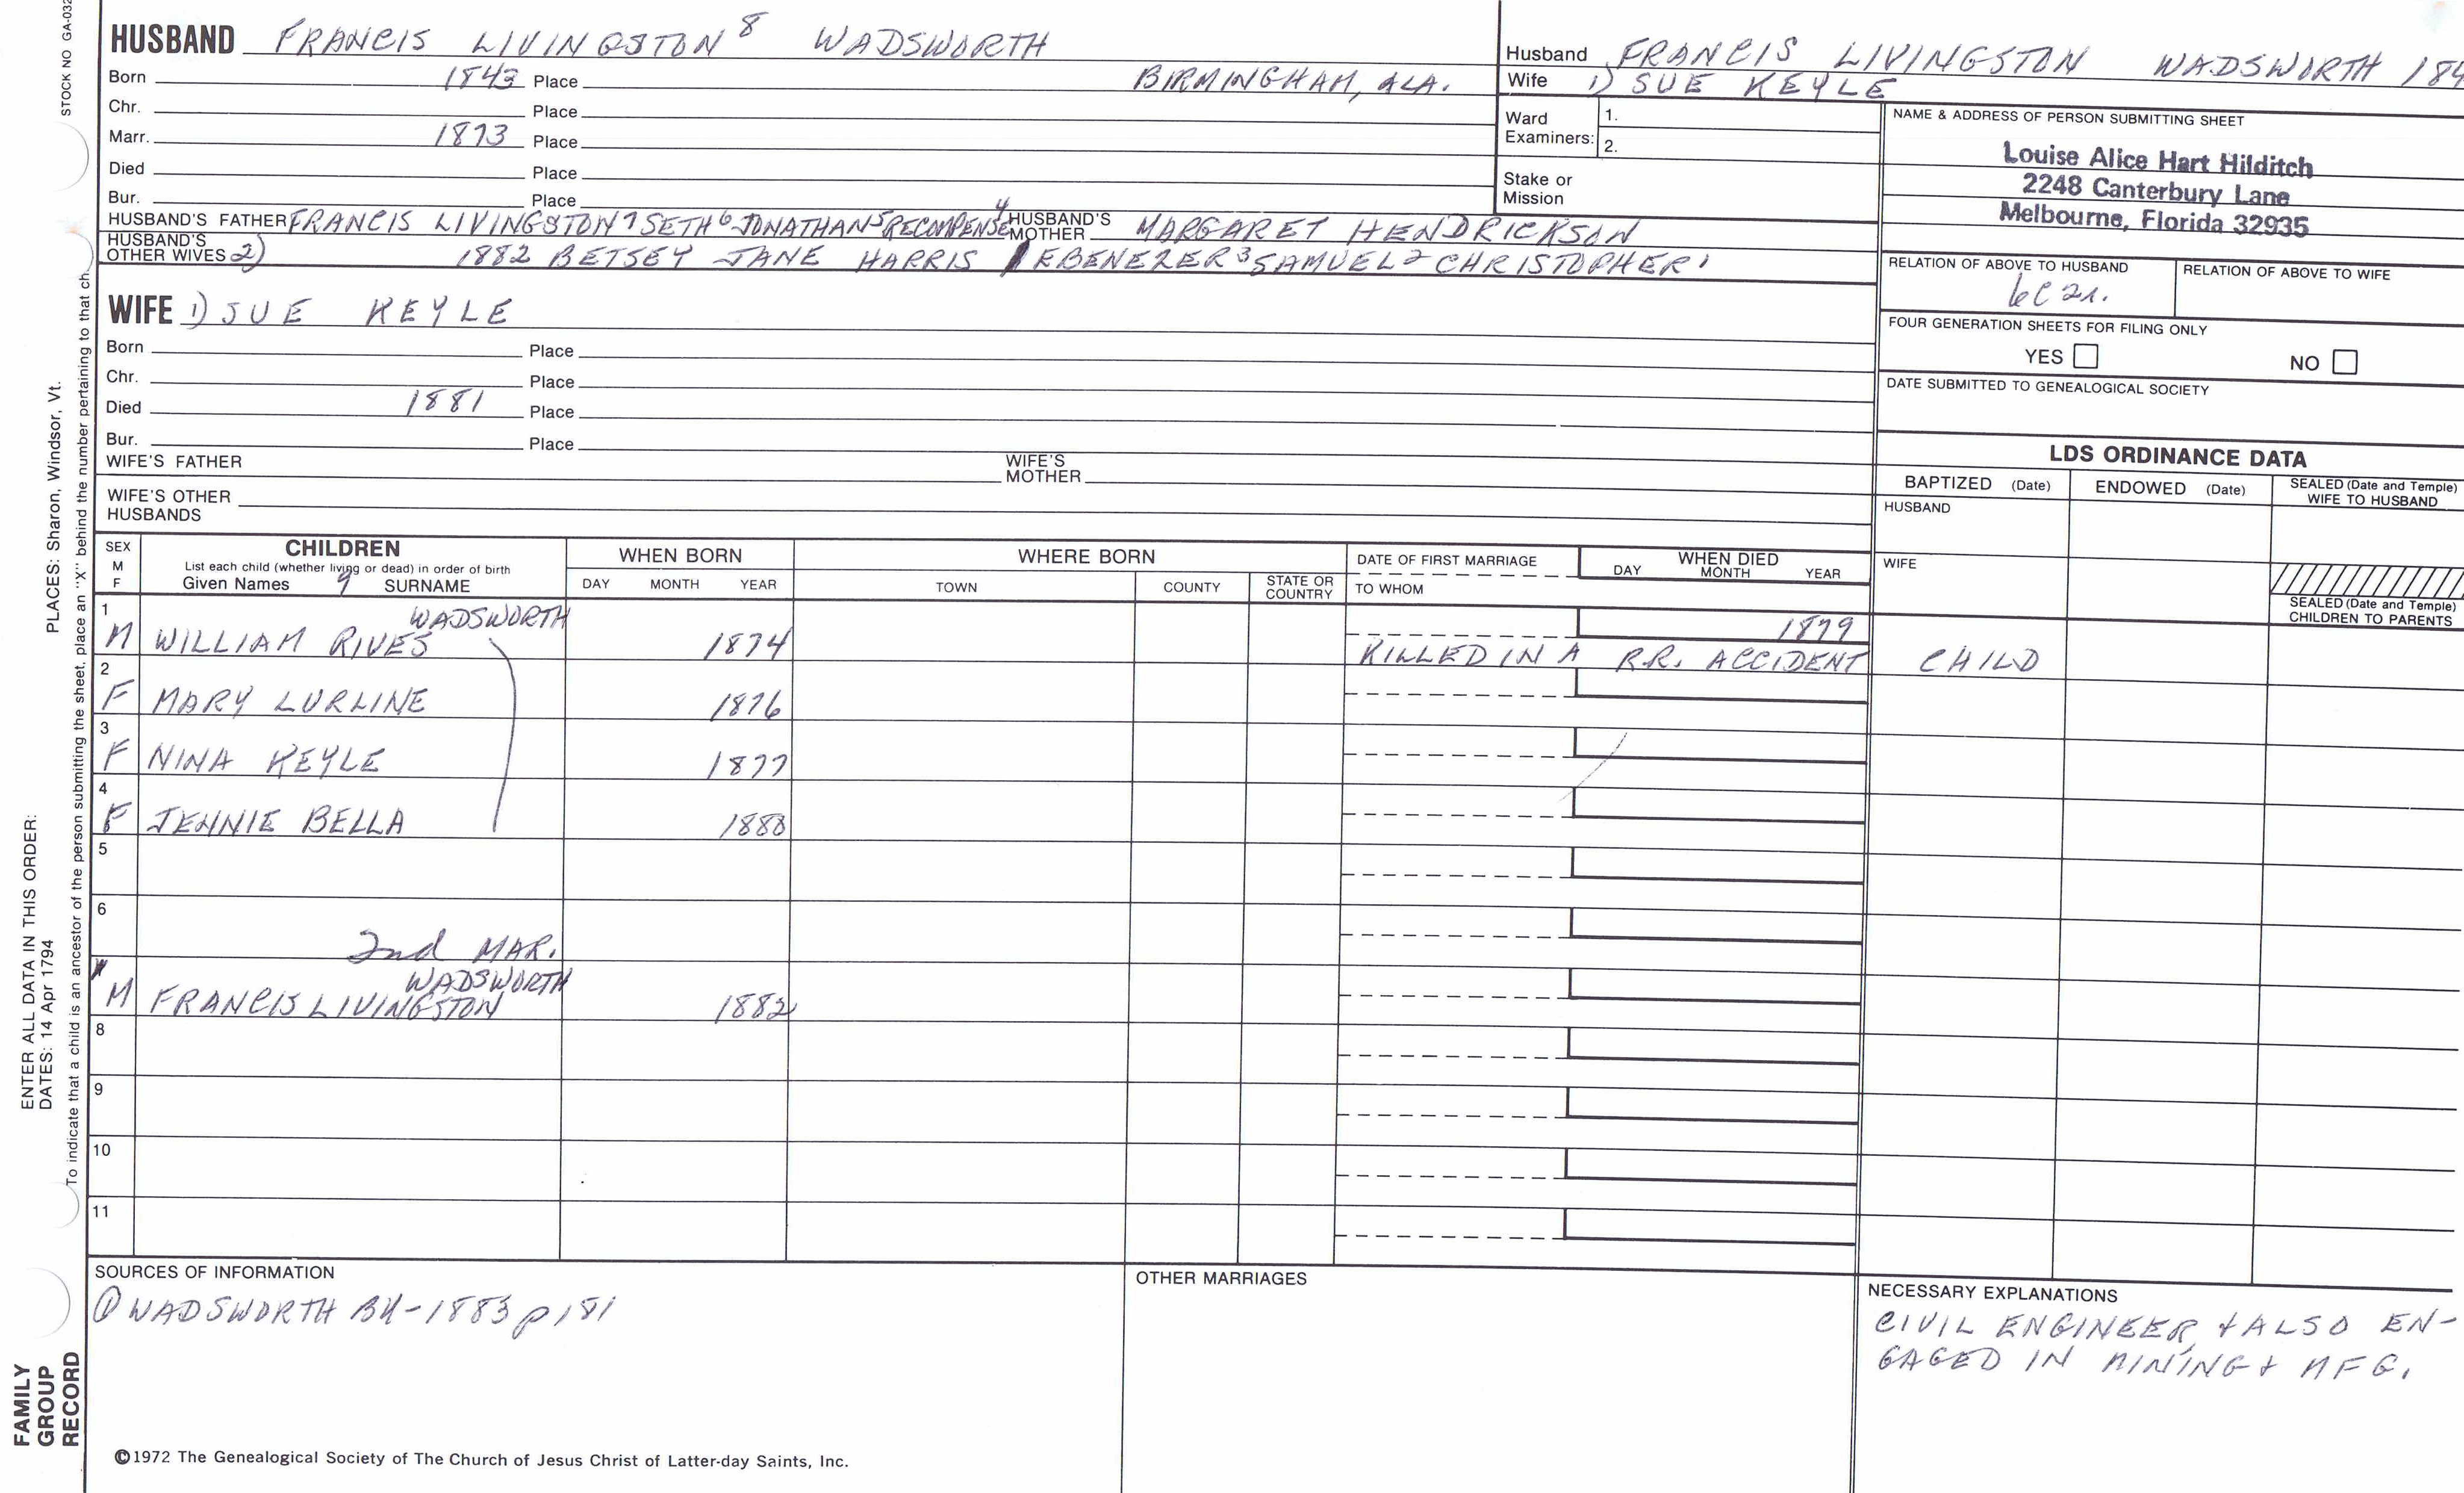 HUSBAND FRANCIS LIVINGSTON⁸ WADSWORTH
Born 1843 Place BIRMINGHAM, ALA.
Chr. Place
Marr. 1873 Place
Died Place
Bur. Place
HUSBAND'S FATHER FRANCIS LIVINGSTON⁷ SETH⁶ JONATHAN⁵ RECOMPENSE⁴ HUSBAND'S MOTHER MARGARET HENDRICKSON
HUSBAND'S OTHER WIVES 2) 1882 BETSEY JANE HARRIS EBENEZER³ SAMUEL² CHRISTOPHER¹
WIFE 1) SUE KEYLE
Born Place
Chr. Place
Died 1881 Place
Bur. Place
WIFE'S FATHER WIFE'S MOTHER
WIFE'S OTHER HUSBANDS
Husband FRANCIS LIVINGSTON WADSWORTH 184
Wife 1) SUE KEYLE
Ward Examiners: 1.
2.
Stake or Mission
NAME & ADDRESS OF PERSON SUBMITTING SHEET
Louise Alice Hart Hilditch
2248 Canterbury Lane
Melbourne, Florida 32935
RELATION OF ABOVE TO HUSBAND RELATION OF ABOVE TO WIFE
6C2r.
FOUR GENERATION SHEETS FOR FILING ONLY
YES NO
DATE SUBMITTED TO GENEALOGICAL SOCIETY
LDS ORDINANCE DATA
BAPTIZED (Date) ENDOWED (Date) SEALED (Date and Temple) WIFE TO HUSBAND
HUSBAND
WIFE
SEALED (Date and Temple) CHILDREN TO PARENTS
SEX M F
CHILDREN
List each child (whether living or dead) in order of birth
Given Names 9 SURNAME
WHEN BORN
DAY MONTH YEAR
WHERE BORN
TOWN COUNTY STATE OR COUNTRY
DATE OF FIRST MARRIAGE
TO WHOM
WHEN DIED
DAY MONTH YEAR
1 WADSWORTH
M WILLIAM RIVES 1874 1879
KILLED IN A R.R. ACCIDENT CHILD
2
F MARY LURLINE 1876
3
F NINA KEYLE 1877
4
F JENNIE BELLA 1880
5
6
2nd MAR.
WADSWORTH
M FRANCIS LIVINGSTON 1882
8
9
10
11
SOURCES OF INFORMATION
① WADSWORTH BK-1883 p 181
OTHER MARRIAGES
NECESSARY EXPLANATIONS
CIVIL ENGINEER, + ALSO EN-
GAGED IN MINING + MFG.
©1972 The Genealogical Society of The Church of Jesus Christ of Latter-day Saints, Inc.
STOCK NO GA-032
PLACES: Sharon, Windsor, Vt.
To indicate that a child is an ancestor of the person submitting the sheet, place an "X" behind the number pertaining to that ch
ENTER ALL DATA IN THIS ORDER:
DATES: 14 Apr 1794
FAMILY
GROUP
RECORD